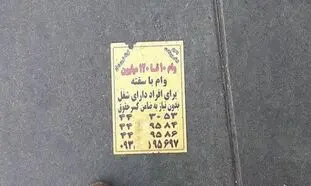 وام ۱۰ تا ۱۲۰ میلیون
وام با سفته
برای افراد دارای شغل
بدون نیاز به ضامن کسر حقوق
۴۴ ۳۰ ۵۳
۴۴ ۹۵ ۸۴
۴۴ ۹۵ ۸۶
۰۹۳ ۱۹۵۶۹۷